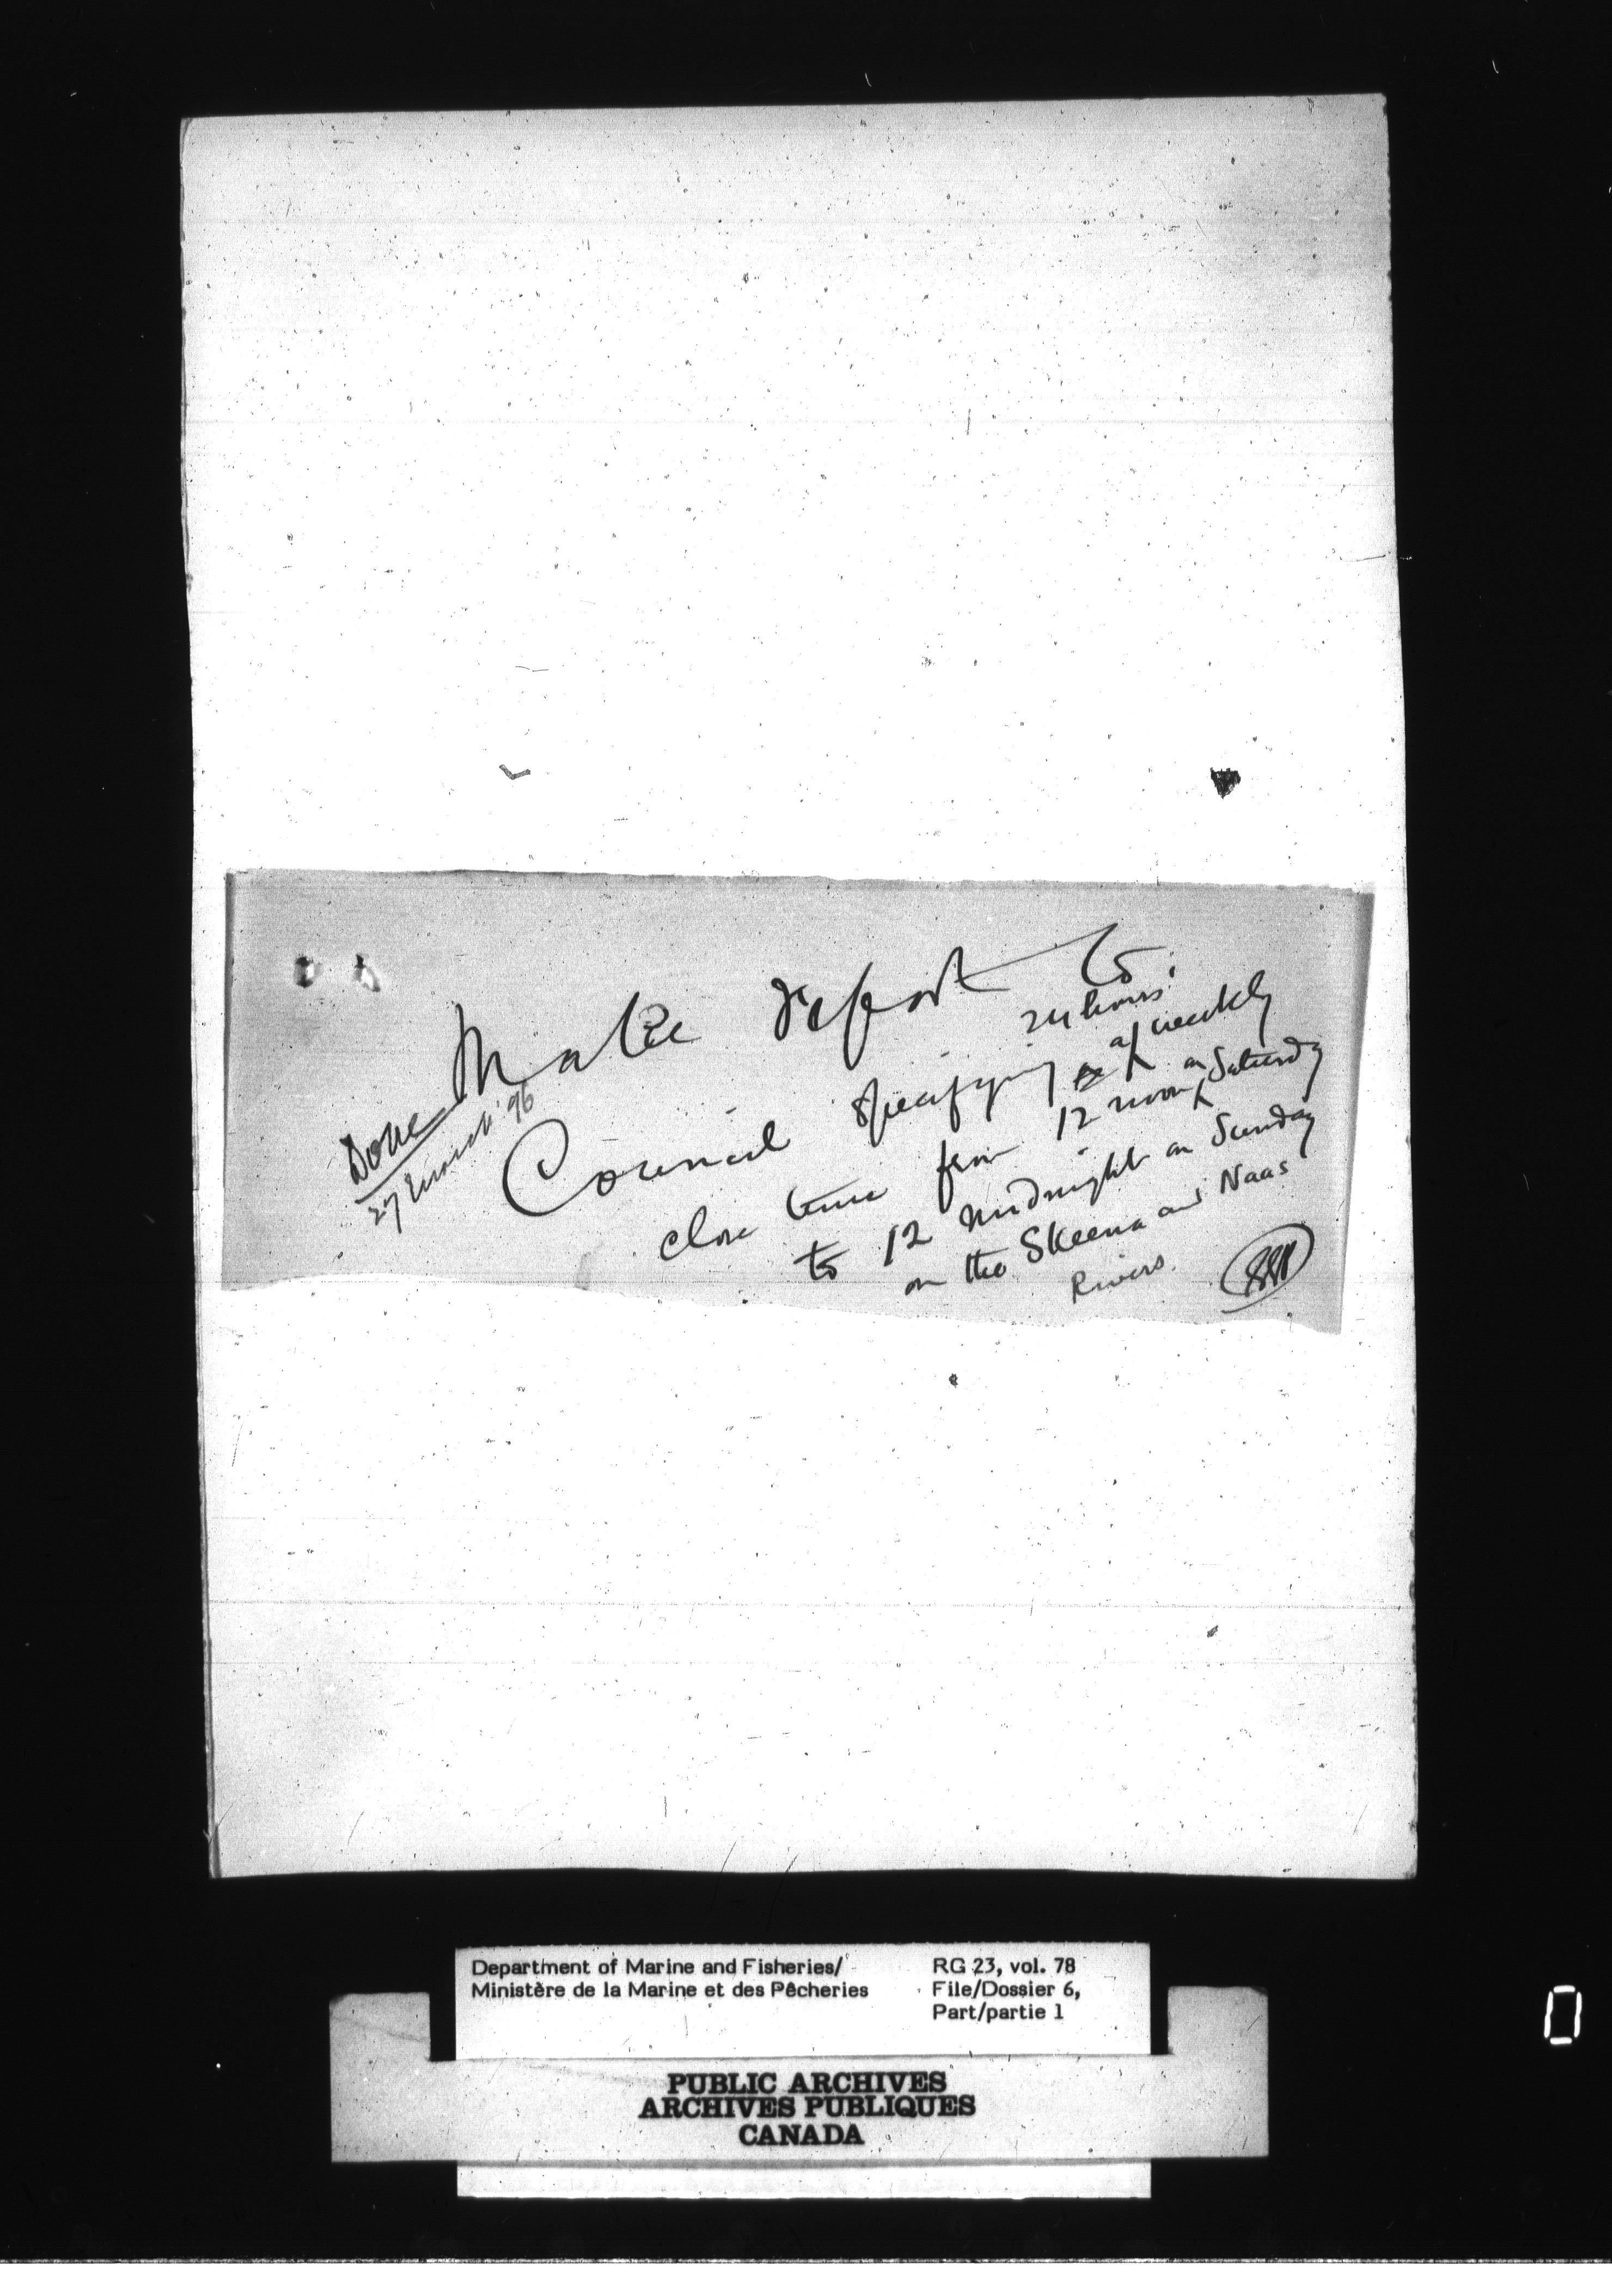 Make report to
24 hours'
Council specifying as weekly
close time from 12 noon on Saturday
to 12 midnight on Sunday
on the Skeena and Naas
Rivers.
Done
27 March '96
Department of Marine and Fisheries/
Ministère de la Marine et des Pêcheries
RG 23, vol. 78
File/Dossier 6,
Part/partie 1
PUBLIC ARCHIVES
ARCHIVES PUBLIQUES
CANADA
0